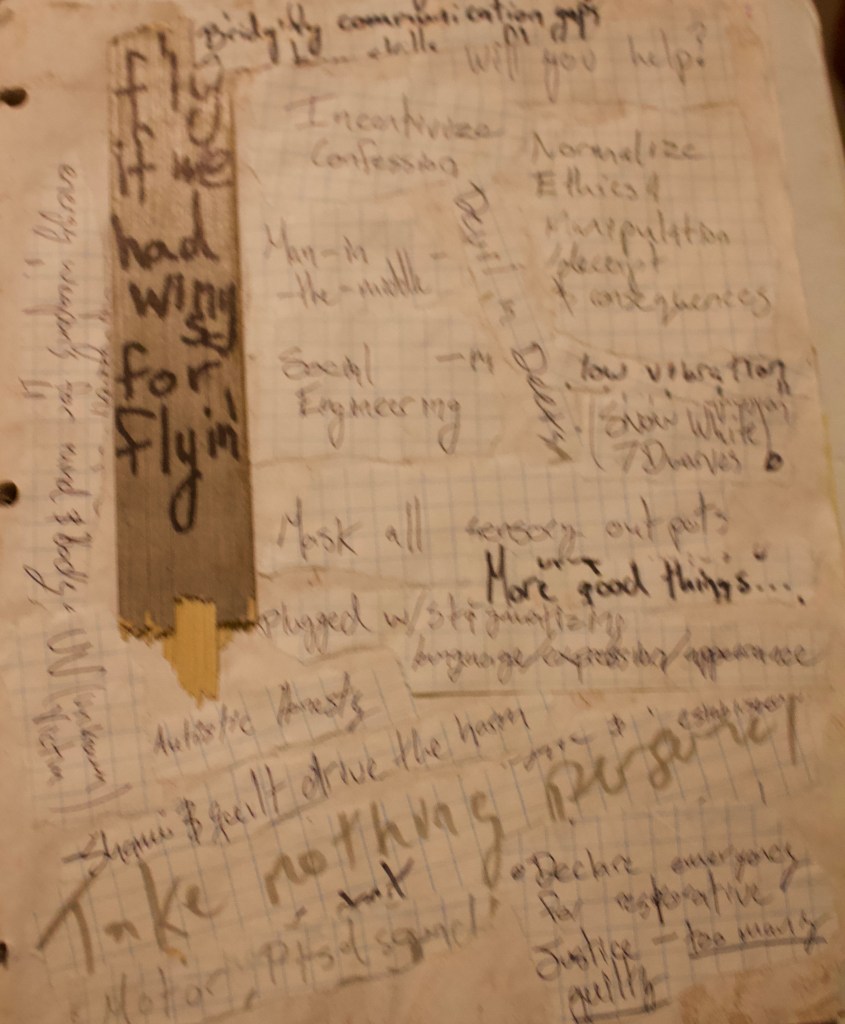 communication gaps
Will you help?
fly
if we
had
wings
for
flyin'
Incentivize
Confession
Normalize
Ethics &
Manipulation
deceipt
& consequences
Man-in
-the-middle
Social
Engineering
Devil's
Deeds
low vibration
(Snow White
7 Dwarves
Mask all sensory outputs
More good things....
plugged w/ stigmatizing
language/expression/appearance
Autistic Honesty
Shame & guilt drive the harm
Take nothing personal
Motor, Ptsd squad
• Declare emergency
for restorative
Justice - too many
guilty